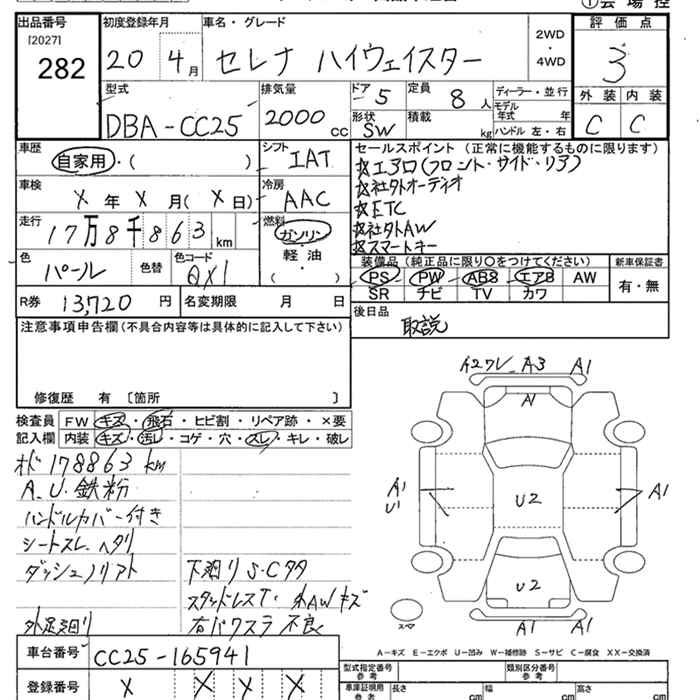 ①会場控
出品番号 初度登録年月 車名・グレード 評価点
[2027]
282
20 4月 セレナ ハイウェイスター 2WD・4WD 3
型式 排気量 ドア 5 定員 8人 ディーラー・並行 外装 内装
モデル年式 年
DBA-CC25 2000cc 形状 SW 積載 kg ハンドル 左・右 C C
車歴 自家用・( ) シフト IAT
セールスポイント (正常に機能するものに限ります)
☆エアロ(フロント・サイド・リア)
☆社外オーディオ
☆ETC
☆社外AW
☆スマートキー
車検 X年X月(X日) 冷房 AAC
走行 17万8千863km 燃料 ガソリン・軽油・( )
色 パール 色替 色コード QX1
装備品 (純正品に限り〇をつけてください) 新車保証書
PS PW ABS エアB AW 有・無
SR ナビ TV カワ
R券 13,720円 名変期限 月 日
後日品 取説
注意事項申告欄(不具合内容等は具体的に記入して下さい)
修復歴 有 〔箇所 〕
検査員記入欄
FW キズ・飛石・ヒビ割・リペア跡・×要
内装 キズ・汚レ・コゲ・穴・スレ・キレ・破レ
オド178863km
A.U.鉄粉
ハンドルカバー付き
シートスレ.ヘタリ
ダッシュノリアト
外足廻り
下廻りS.Cタタ
スタッドレスT. 外AWキズ
右パワスラ不良
A3 A1
A1
A1 U1 U2 A1
U2
スペア A1 A1
A-キズ E-エクボ U-凹み W-補修跡 S-サビ C-腐食 XX-交換済
車台番号 CC25-165941
登録番号 X X X X
型式指定番号 参考 類別区分番号 参考
車庫証明用 参考 長さ cm 幅 cm 高さ cm